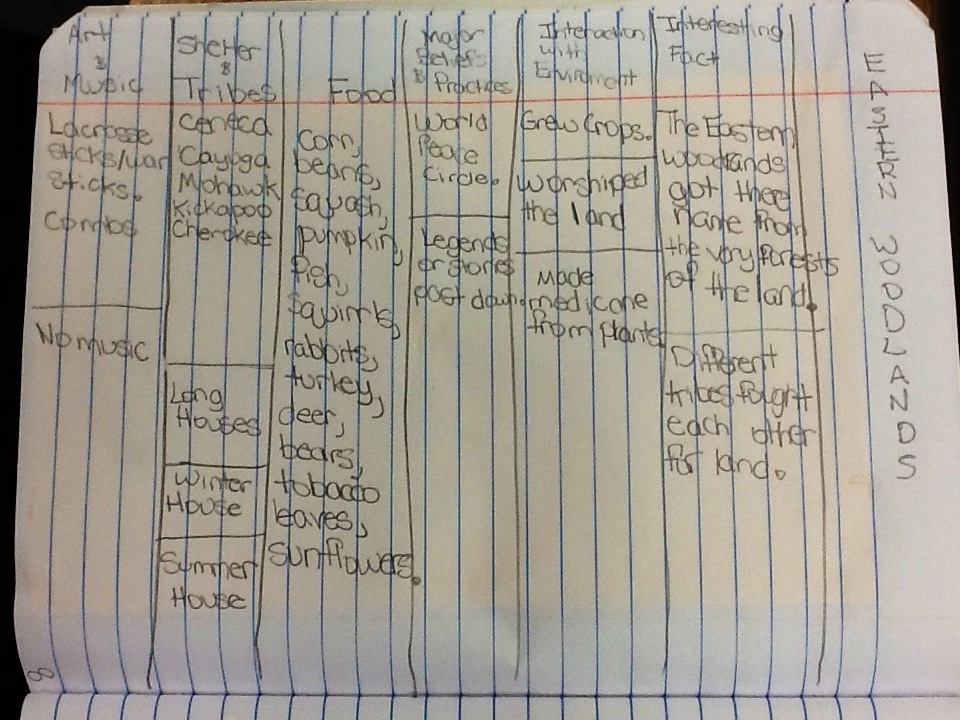 Art
&
Music
Lacrosse
sticks/war
sticks.
Combos
No music
Shelter
&
Tribes
Ceneca
Cayoga
Mohawk
Kickapoo
Cherokee
Long
Houses
Winter
House
Summer
House
Food
Corn,
beans,
squash,
pumpkin,
fish,
squirrls,
rabbits,
turkey,
deer,
bears,
tobacco
leaves,
sunflowers.
Major
Beliefs
& Practices
World
Peace
Circle.
Legends
or stories
post down.
Interaction
with
Enviroment
Grew Crops.
Worshiped
the land
Made
medicone
from plants
Interesting
Fact
The Eastern
woodlands
got there
name from
the very forests
of the land.
Different
tribes fought
each other
for land.
EASTERN WOODLANDS
8